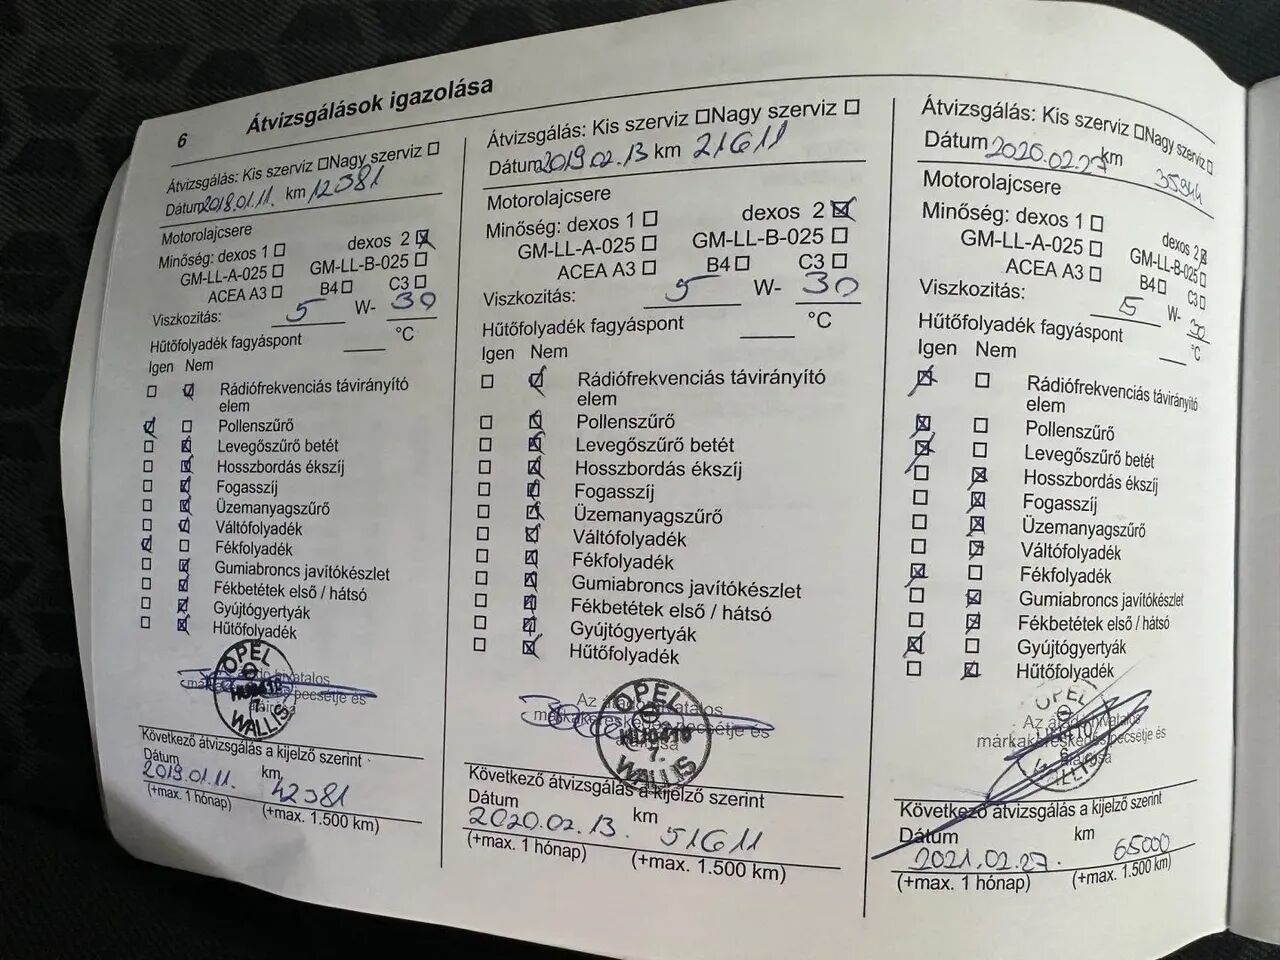 6
Átvizsgálások igazolása
Átvizsgálás: Kis szerviz ☐ Nagy szerviz ☐
Dátum 2018.01.11. km 12381
Motorolajcsere
Minőség: dexos 1 ☐ dexos 2 ☒
GM-LL-A-025 ☐ GM-LL-B-025 ☐
ACEA A3 ☐ B4 ☐ C3 ☐
Viszkozitás: 5 W- 30
Hűtőfolyadék fagyáspont ___ °C
Igen Nem
☐ ☒ Rádiófrekvenciás távirányító
elem
☒ ☐ Pollenszűrő
☐ ☒ Levegőszűrő betét
☐ ☒ Hosszbordás ékszíj
☐ ☒ Fogasszíj
☐ ☒ Üzemanyagszűrő
☐ ☒ Váltófolyadék
☒ ☐ Fékfolyadék
☐ ☒ Gumiabroncs javítókészlet
☐ ☒ Fékbetétek első / hátsó
☐ ☒ Gyújtógyertyák
☐ ☒ Hűtőfolyadék
OPEL
WALLIS
pecsétje és
Következő átvizsgálás a kijelző szerint
Dátum km
2019.01.11. 42381
(+max. 1 hónap) (+max. 1.500 km)
Átvizsgálás: Kis szerviz ☐ Nagy szerviz ☐
Dátum 2019.02.13 km 21611
Motorolajcsere
Minőség: dexos 1 ☐ dexos 2 ☒
GM-LL-A-025 ☐ GM-LL-B-025 ☐
ACEA A3 ☐ B4 ☐ C3 ☐
Viszkozitás: 5 W- 30
Hűtőfolyadék fagyáspont ___ °C
Igen Nem
☐ ☒ Rádiófrekvenciás távirányító
elem
☐ ☒ Pollenszűrő
☐ ☒ Levegőszűrő betét
☐ ☒ Hosszbordás ékszíj
☐ ☒ Fogasszíj
☐ ☒ Üzemanyagszűrő
☐ ☒ Váltófolyadék
☐ ☒ Fékfolyadék
☐ ☒ Gumiabroncs javítókészlet
☐ ☒ Fékbetétek első / hátsó
☐ ☒ Gyújtógyertyák
☐ ☒ Hűtőfolyadék
OPEL
Az
HU0418
pecsétje és
7.
WALLIS
Következő átvizsgálás a kijelző szerint
Dátum km
2020.02.13. 51611
(+max. 1 hónap) (+max. 1.500 km)
Átvizsgálás: Kis szerviz ☐ Nagy szerviz ☐
Dátum 2020.02.27 km 35944
Motorolajcsere
Minőség: dexos 1 ☐ dexos 2 ☒
GM-LL-A-025 ☐ GM-LL-B-025 ☐
ACEA A3 ☐ B4 ☐ C3 ☐
Viszkozitás: 5 W- 30
Hűtőfolyadék fagyáspont ___ °C
Igen Nem
☒ ☐ Rádiófrekvenciás távirányító
elem
☒ ☐ Pollenszűrő
☒ ☐ Levegőszűrő betét
☐ ☒ Hosszbordás ékszíj
☐ ☒ Fogasszíj
☐ ☒ Üzemanyagszűrő
☐ ☒ Váltófolyadék
☒ ☐ Fékfolyadék
☐ ☒ Gumiabroncs javítókészlet
☐ ☒ Fékbetétek első / hátsó
☒ ☐ Gyújtógyertyák
☐ ☒ Hűtőfolyadék
OPEL
Az
pecsétje és
Következő átvizsgálás a kijelző szerint
Dátum km
2021.02.27. 65000
(+max. 1 hónap) (+max. 1.500 km)